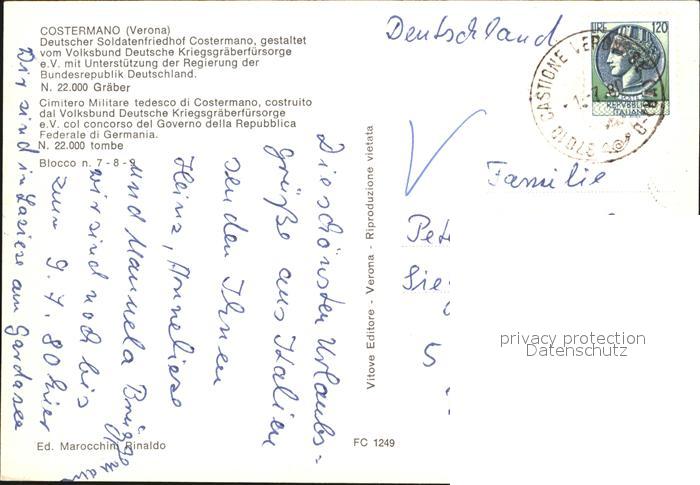 COSTERMANO (Verona)
Deutscher Soldatenfriedhof Costermano, gestaltet
vom Volksbund Deutsche Kriegsgräberfürsorge
e.V. mit Unterstützung der Regierung der
Bundesrepublik Deutschland.
N. 22.000 Gräber
Cimitero Militare tedesco di Costermano, costruito
dal Volksbund Deutsche Kriegsgräberfürsorge
e.V. col concorso del Governo della Repubblica
Federale di Germania.
N. 22.000 tombe
Blocco n. 7 - 8 - 9
Die schönsten Urlaubs-
grüße aus Italien
senden Ihnen
Heinz, Anneliese
und Manuela
wir sind noch bis
zum 9.7.80 hier
Wir sind in Lazise am Gardasee
Ed. Marocchini Rinaldo
FC 1249
Vitove Editore - Verona - Riproduzione vietata
Deutschland
LIRE 120
REPVBBLICA
ITALIANA
CASTIONE
37010
Familie
Pet
Sie
5
privacy protection
Datenschutz